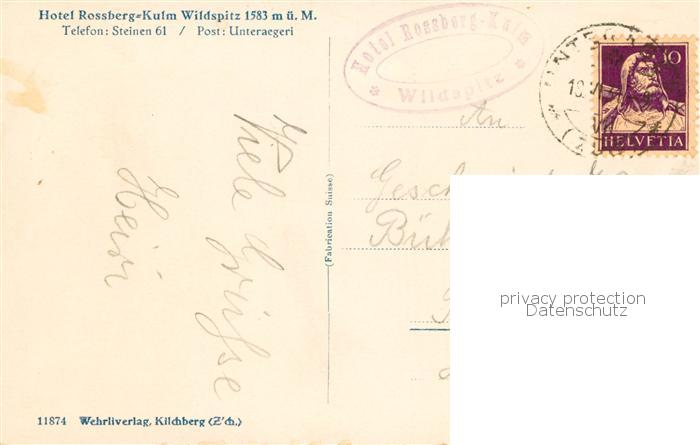 Hotel Rossberg-Kulm Wildspitz 1583 m ü. M.
Telefon: Steinen 61 / Post: Unteraegeri
Hotel Rossberg-Kulm
* Wildspitz *
10
HELVETIA
An
Viele Grüsse
Heiri
(Fabrication Suisse)
privacy protection
Datenschutz
11874 Wehrliverlag, Kilchberg (Z'ch.)